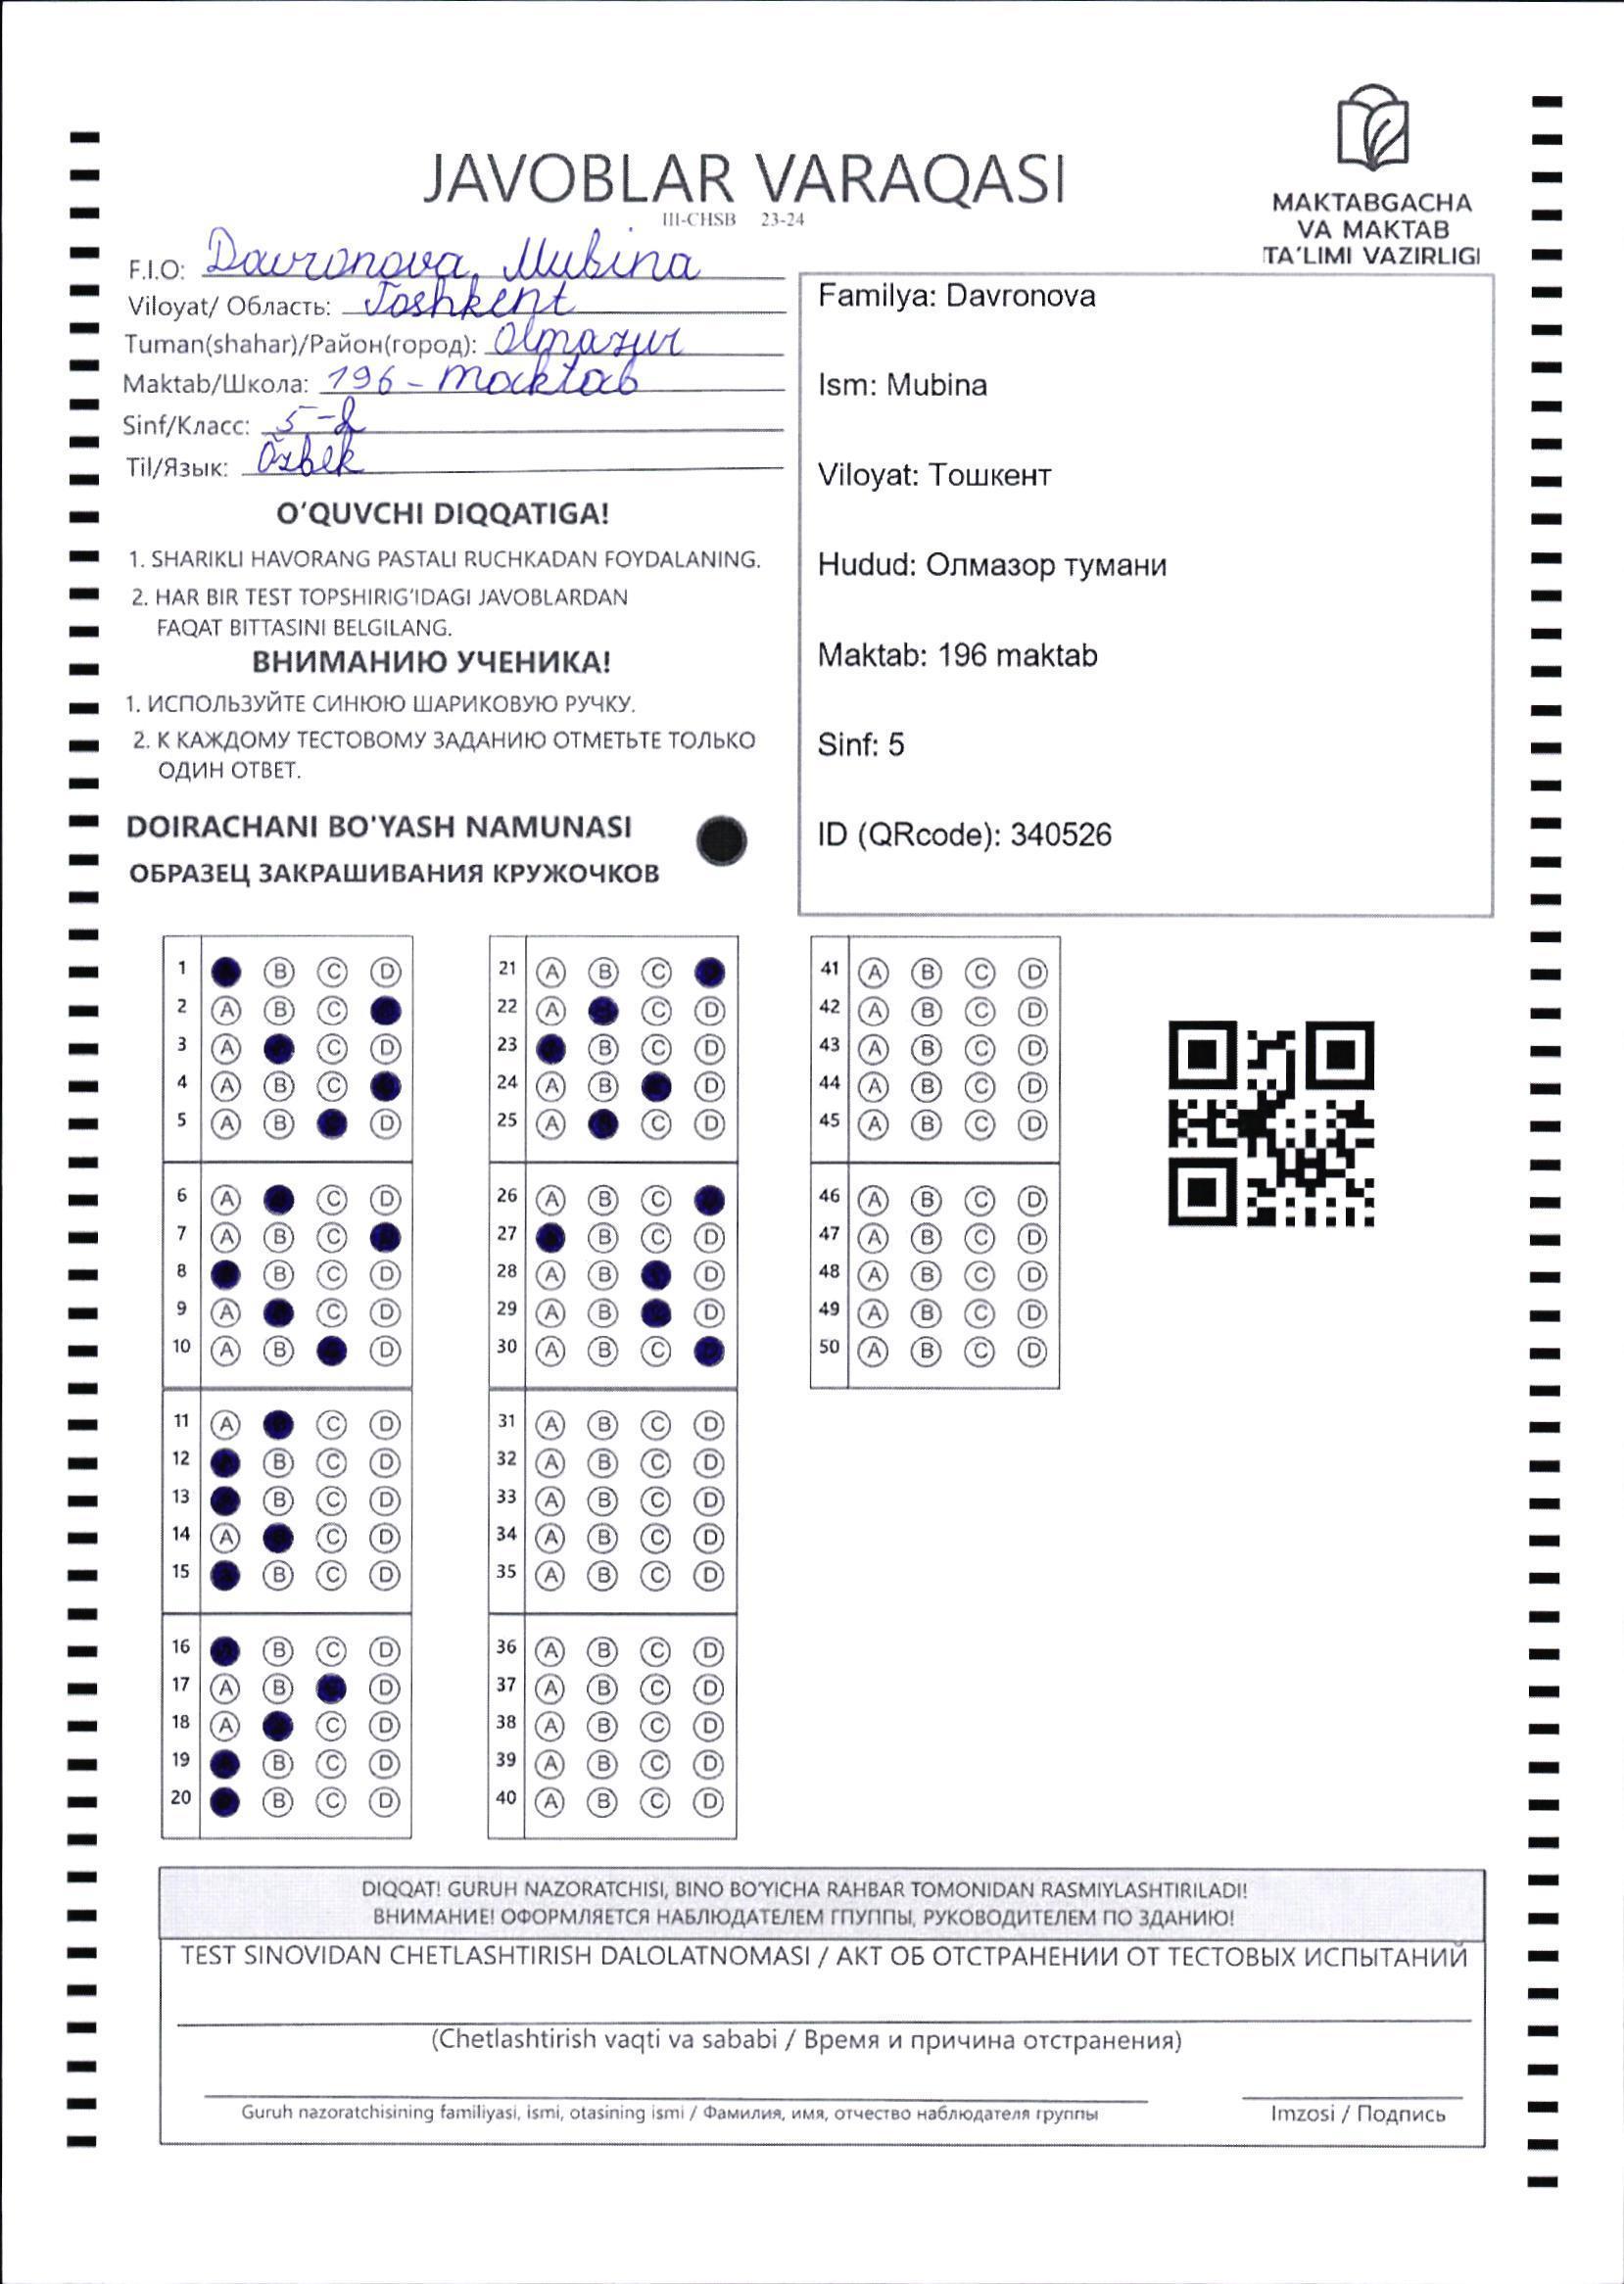 JAVOBLAR VARAQASI
III-CHSB 23-24
MAKTABGACHA
VA MAKTAB
TA'LIMI VAZIRLIGI
F.I.O: Davronova Mubina
Viloyat/ Область: Toshkent
Tuman(shahar)/Район(город): Olmazur
Maktab/Школа: 196 - maktab
Sinf/Класс: 5-
Til/Язык: Ozbek
O'QUVCHI DIQQATIGA!
1. SHARIKLI HAVORANG PASTALI RUCHKADAN FOYDALANING.
2. HAR BIR TEST TOPSHIRIG'IDAGI JAVOBLARDAN
FAQAT BITTASINI BELGILANG.
ВНИМАНИЮ УЧЕНИКА!
1. ИСПОЛЬЗУЙТЕ СИНЮЮ ШАРИКОВУЮ РУЧКУ.
2. К КАЖДОМУ ТЕСТОВОМУ ЗАДАНИЮ ОТМЕТЬТЕ ТОЛЬКО
ОДИН ОТВЕТ.
DOIRACHANI BO'YASH NAMUNASI
ОБРАЗЕЦ ЗАКРАШИВАНИЯ КРУЖОЧКОВ
Familya: Davronova
Ism: Mubina
Viloyat: Тошкент
Hudud: Олмазор тумани
Maktab: 196 maktab
Sinf: 5
ID (QRcode): 340526
1 B C D
2 A B C
3 A C D
4 A B C
5 A B D
6 A C D
7 A B C
8 B C D
9 A C D
10 A B D
11 A C D
12 B C D
13 B C D
14 A C D
15 B C D
16 B C D
17 A B D
18 A C D
19 B C D
20 B C D
21 A B C
22 A C D
23 B C D
24 A B D
25 A C D
26 A B C
27 B C D
28 A B D
29 A B D
30 A B C
31 A B C D
32 A B C D
33 A B C D
34 A B C D
35 A B C D
36 A B C D
37 A B C D
38 A B C D
39 A B C D
40 A B C D
41 A B C D
42 A B C D
43 A B C D
44 A B C D
45 A B C D
46 A B C D
47 A B C D
48 A B C D
49 A B C D
50 A B C D
DIQQAT! GURUH NAZORATCHISI, BINO BO'YICHA RAHBAR TOMONIDAN RASMIYLASHTIRILADI!
ВНИМАНИЕ! ОФОРМЛЯЕТСЯ НАБЛЮДАТЕЛЕМ ГПУППЫ, РУКОВОДИТЕЛЕМ ПО ЗДАНИЮ!
TEST SINOVIDAN CHETLASHTIRISH DALOLATNOMASI / АКТ ОБ ОТСТРАНЕНИИ ОТ ТЕСТОВЫХ ИСПЫТАНИЙ
(Chetlashtirish vaqti va sababi / Время и причина отстранения)
Guruh nazoratchisining familiyasi, ismi, otasining ismi / Фамилия, имя, отчество наблюдателя группы
Imzosi / Подпись